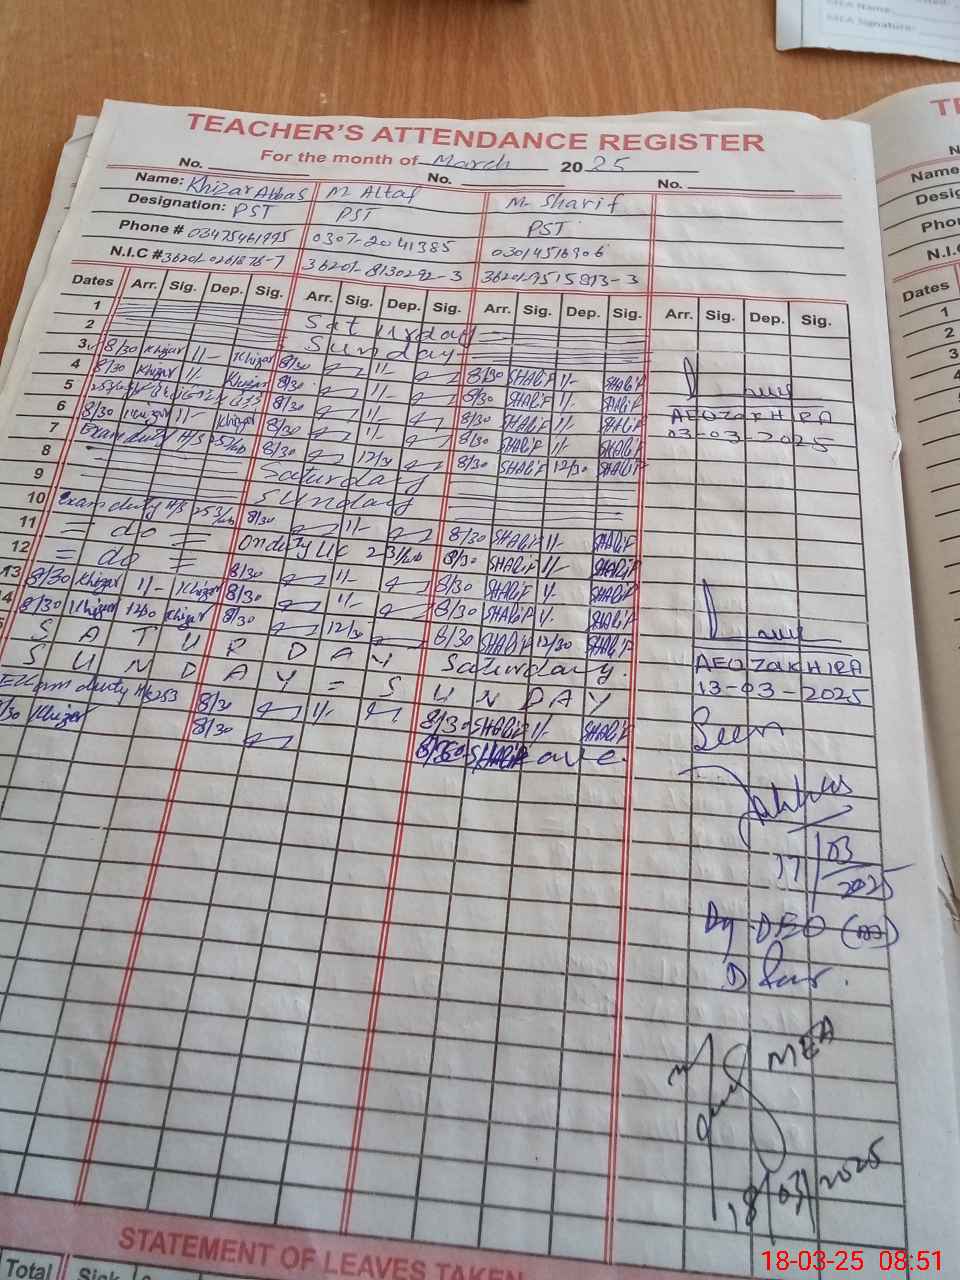 MEA Name:
MEA Signature:
TEACHER'S ATTENDANCE REGISTER
For the month of March 2025
No. No. No.
Name: Khizar Abbas M Altaf M Sharif
Designation: PST PST PST
Phone # 03475461975 0307-2041385 03014516906
N.I.C # 36201-0261876-7 36201-8130292-3 36201-9515913-3
Dates Arr. Sig. Dep. Sig. Arr. Sig. Dep. Sig. Arr. Sig. Dep. Sig. Arr. Sig. Dep. Sig.
1 Saturday
2 Sunday
3 8/30 Khizar 1/- Khizar 8/30 1/- 8/30 SHARIF 1/- SHARIF
4 8/30 Khizar 1/- Khizar 8/30 1/- 8/30 SHARIF 1/- SHARIF
5 8/30 1/- 8/30 SHARIF 1/- SHARIF
AEO ZAKHIRA
6 8/30 Khizar 1/- Khizar 8/30 1/- 8/30 SHARIF 1/- SHARIF
03-03-2025
7 Exam duty H/S 253/wb 8/30 12/30 8/30 SHARIF 12/30 SHARIF
8 Saturday
9 Sunday
10 Exam duty H/S 253/wb 8/30 1/- 8/30 SHARIF 1/- SHARIF
11 = do = On duty UC 8/30 SHARIF 1/- SHARIF
12 = do = 8/30 1/- 8/30 SHARIF 1/- SHARIF
13 8/30 Khizar 1/- Khizar 8/30 1/- 8/30 SHARIF 1/- SHARIF
14 8/30 Khizar 1230 Khizar 8/30 12/30 8/30 SHARIF 12/30 SHARIF
SATURDAY Saturday.
AEO ZAKHIRA
SUNDAY = SUNDAY
13-03-2025
Exam duty H/S 253 8/30 1/- 8/30 SHARIF 1/- SHARIF
Seen
8/30 Khizar 8/30 8/30 SHARIF
17/03/2025
Dy. DEO
MEA
18/03/2025
STATEMENT OF LEAVES TAKEN
Total Sick
TE
N
Name
Desig
Pho
N.I.C
Dates
1
2
3
4
5
6
7
8
9
10
11
12
13
14
18-03-25 08:51